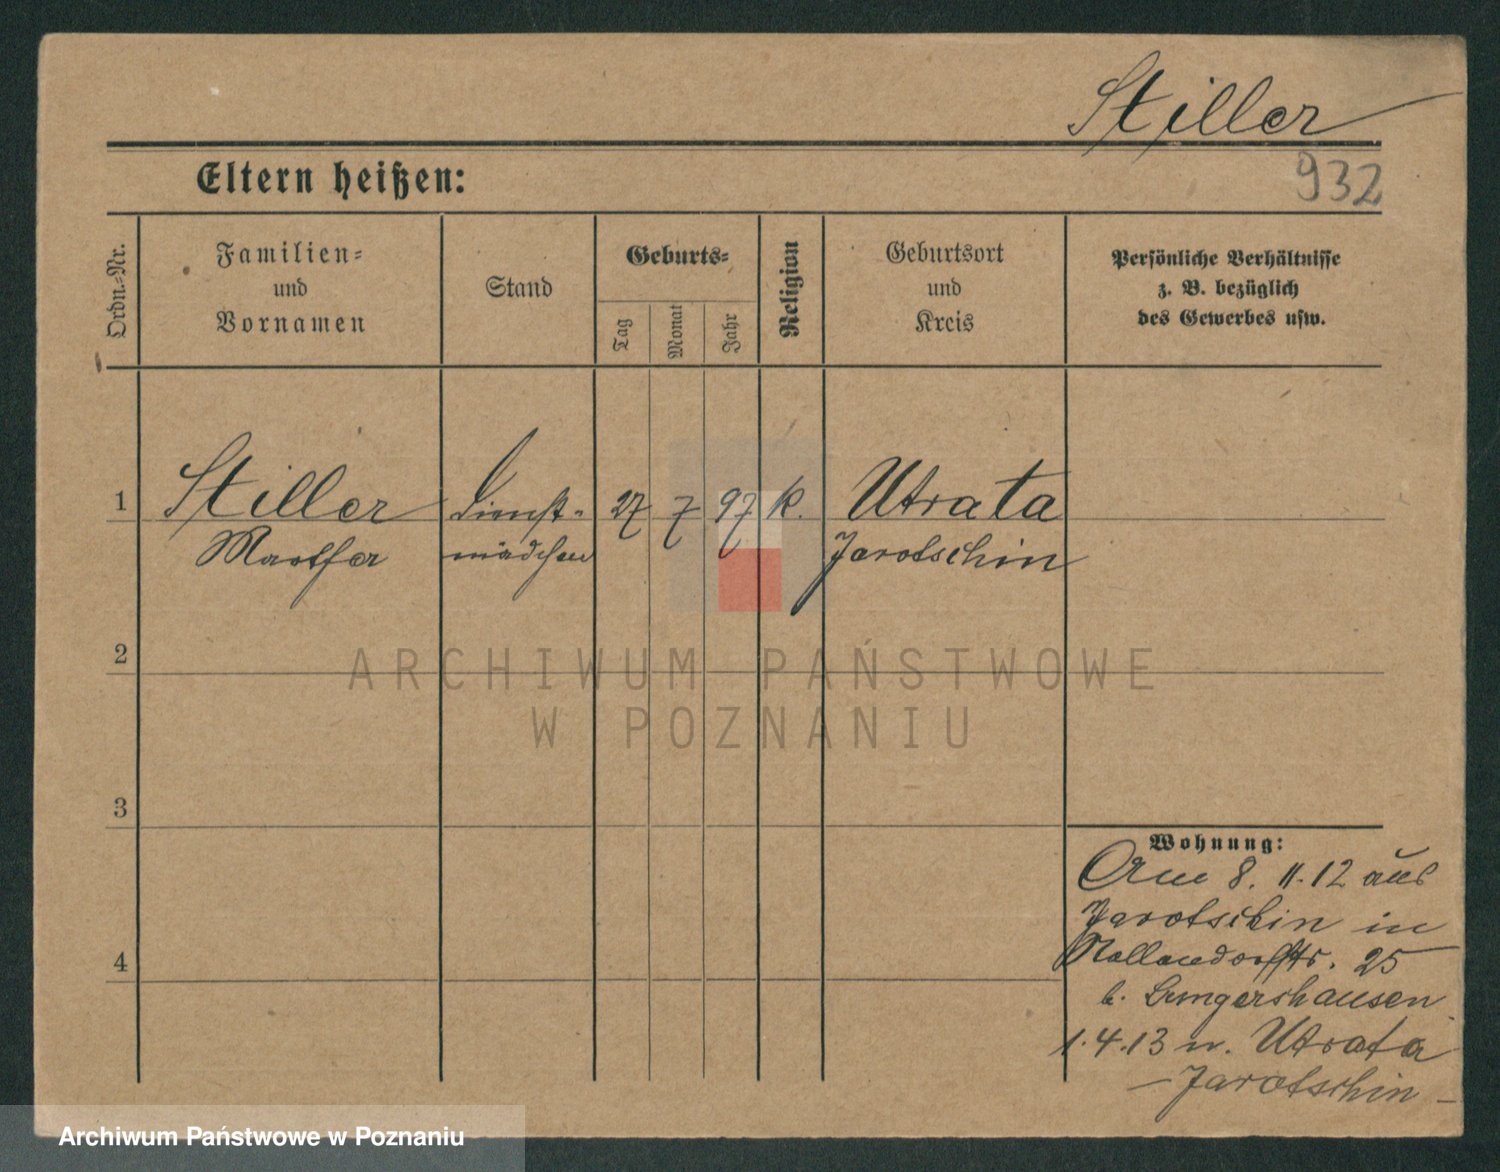 Stiller
932
Eltern heißen:
Ordn.=Nr.
Familien=
und
Vornamen
Stand
Geburts=
Tag
Monat
Jahr
Religion
Geburtsort
und
Kreis
Persönliche Verhältnisse
z. B. bezüglich
des Gewerbes usw.
1
Stiller Dienst= 27 7 97 k. Utrata
mädchen Jarotschin
2
ARCHIWUM PAŃSTWOWE
W POZNANIU
3
Wohnung:
Am 8. 11. 12 aus
Jarotschin in
Nollendorfstr. 25
b. Lungershausen
4
1.4.13 n. Utrata
– Jarotschin –
Archiwum Państwowe w Poznaniu